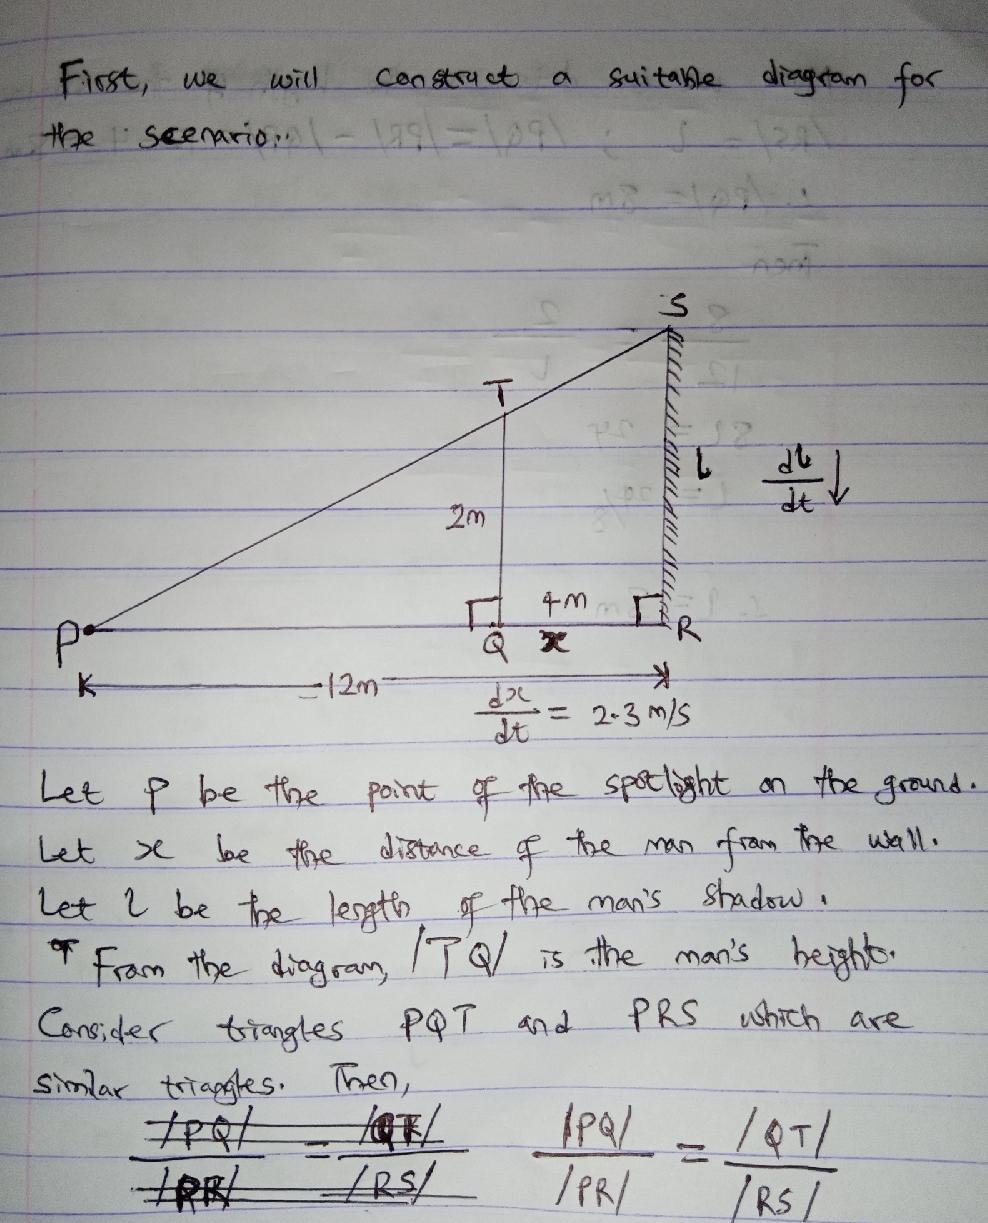 First, we will construct a suitable diagram for
the scenario..
S
T
L dL/dt ↓
2m
4m
P Q x R
12m
dx/dt = 2.3 m/s
Let P be the point of the spotlight on the ground.
Let x be the distance of the man from the wall.
Let l be the length of the man's shadow.
From the diagram, /TQ/ is the man's height.
Consider triangles PQT and PRS which are
similar triangles. Then,
/PQ/ / /PR/ = /QT/ / /RS/